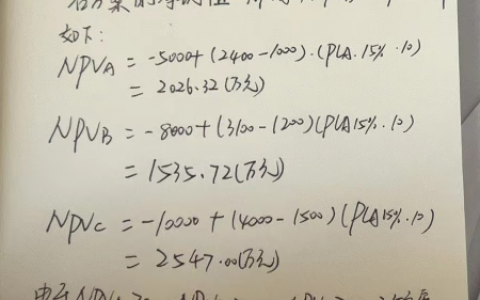 各方案的净现值
如下:
NPVA = -5000+(2400-1000)·(P/A.15%.10)
= 2026.32(万元)
NPVB = -8000+(3100-1200)(P/A15%.10)
= 1535.72(万元)
NPVc = -10000+(4000-1500)(P/A15%.10)
= 2547.00(万元)
由于NPV